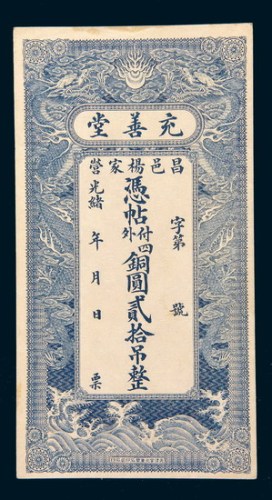 充善堂
昌邑楊家營
字第 號
憑帖付外四銅圓貳拾吊整
光緒 年 月 日 票